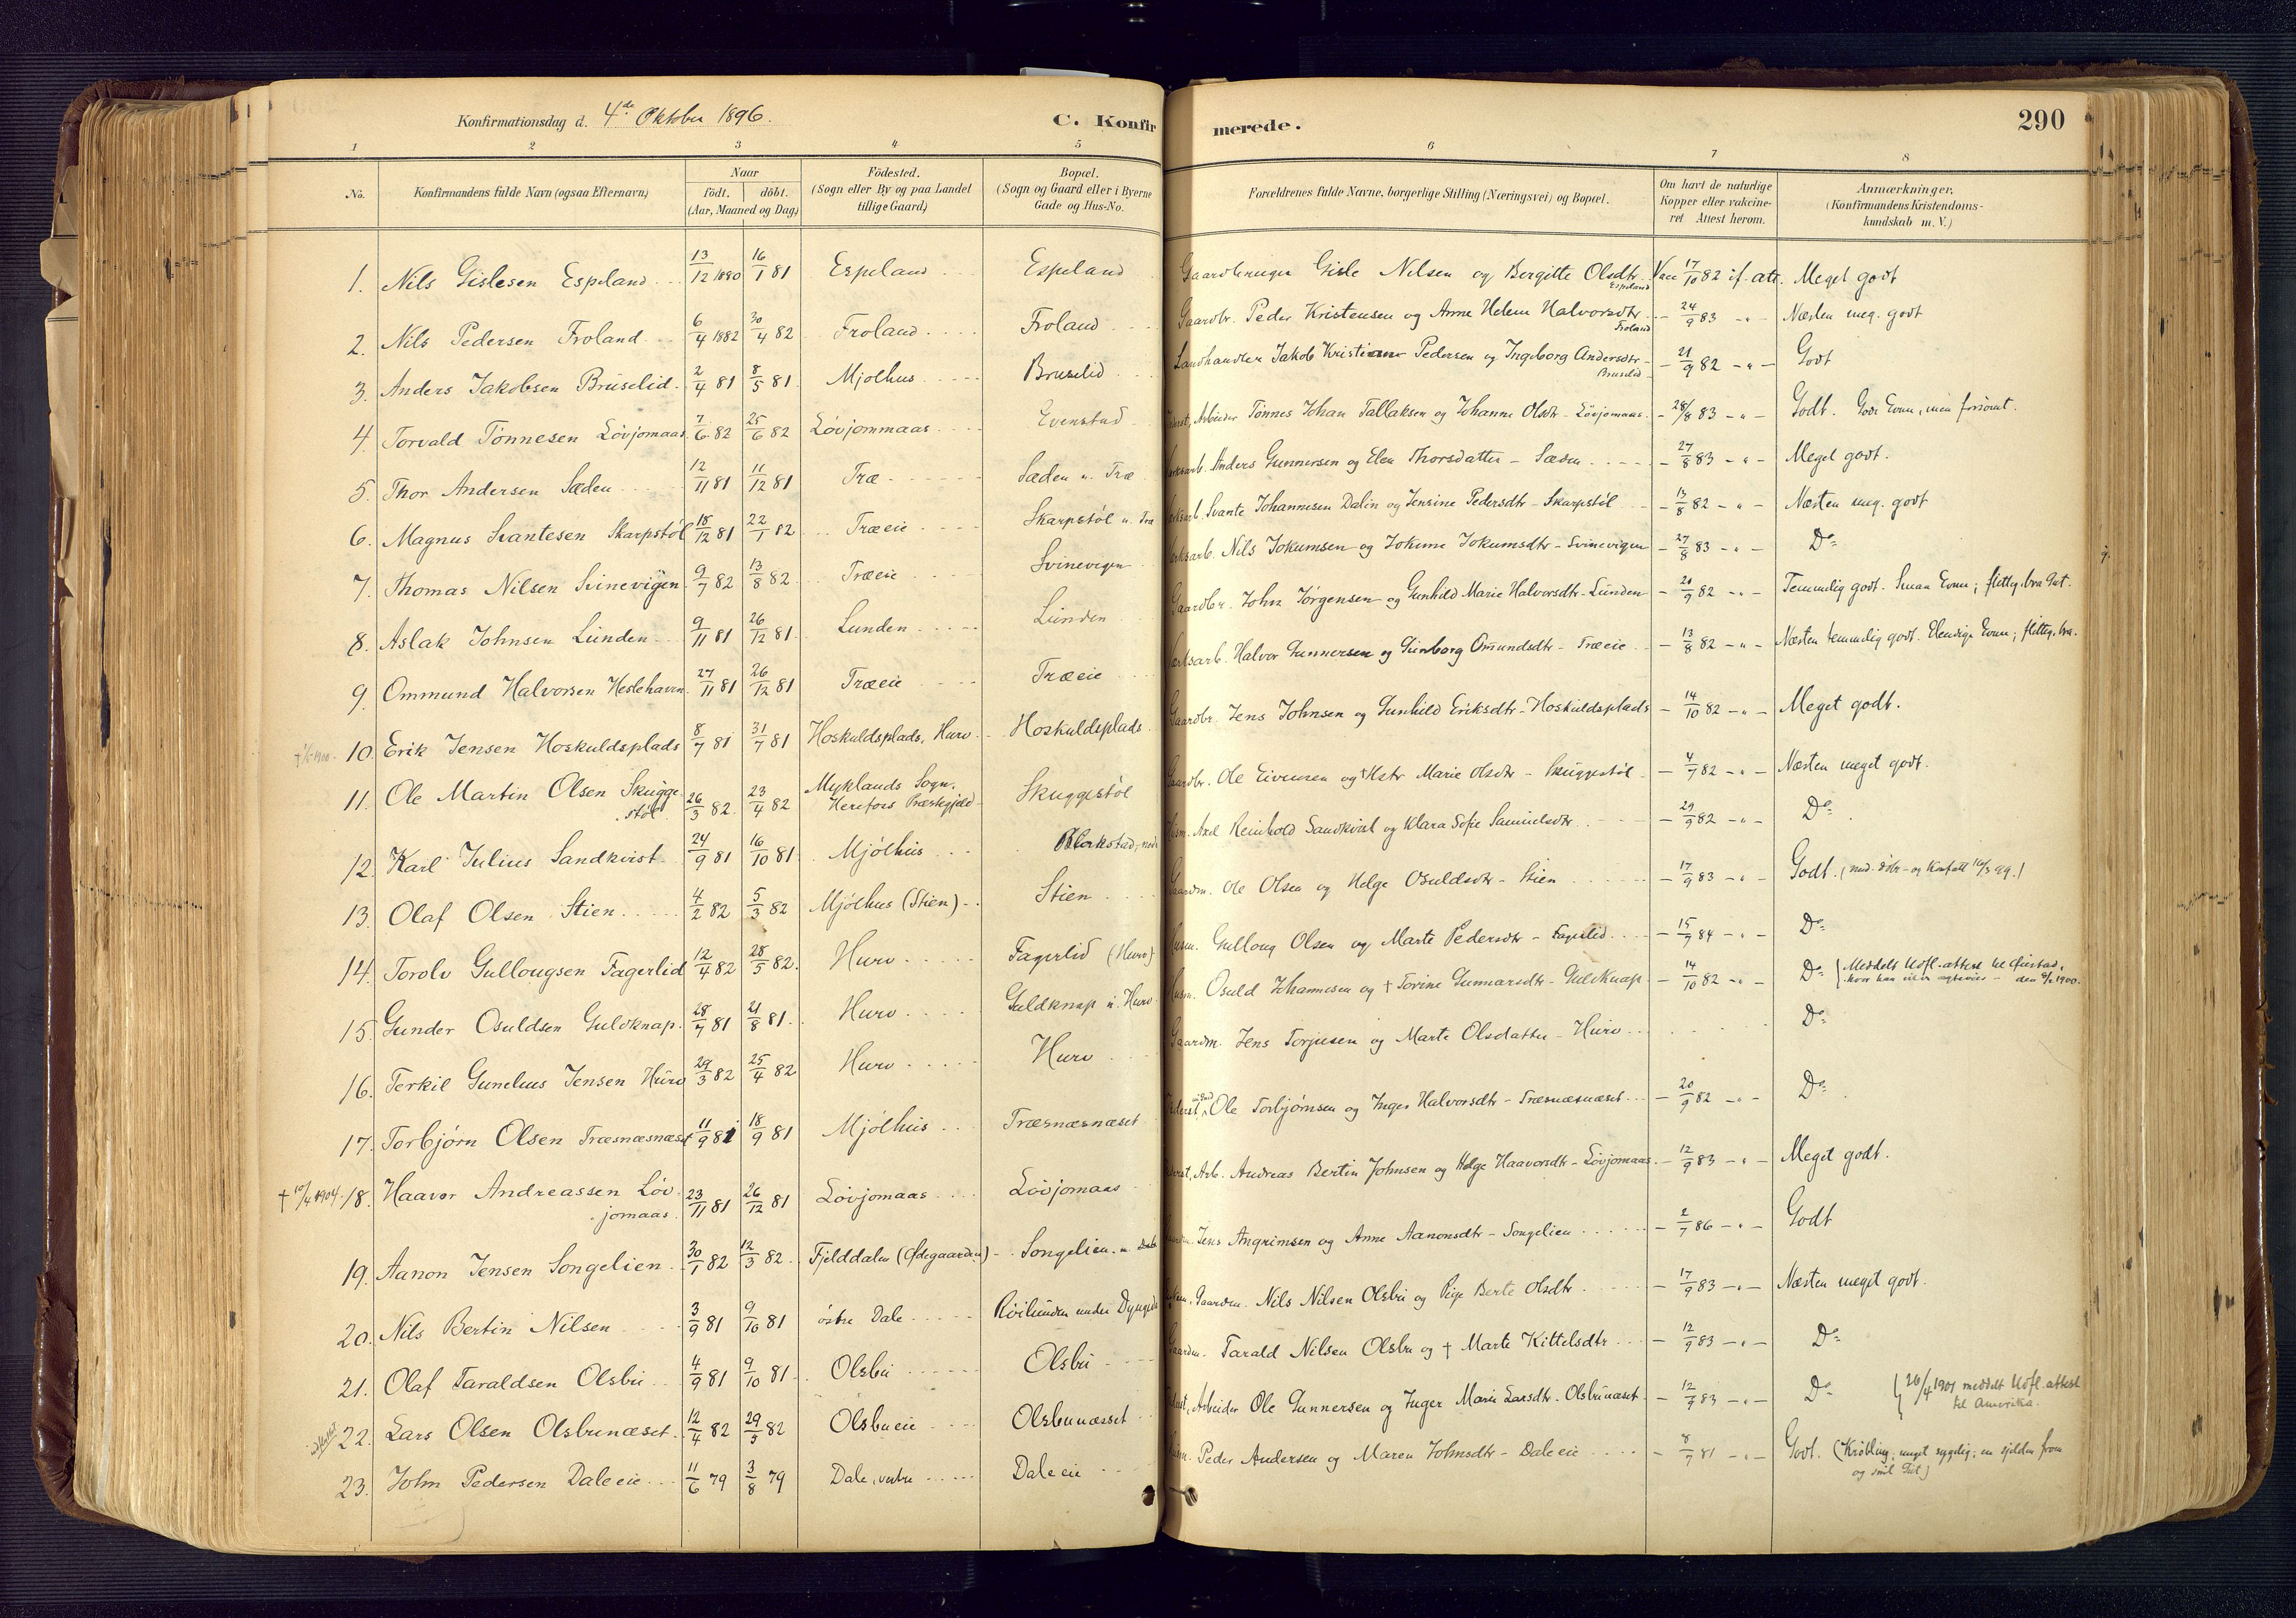 Konfirmationsdag d. 4de Oktober 1896.
C. Konfirmerede.
290
1 2 3 4 5 6 7 8
No.
Konfirmandens fulde Navn (ogsaa Efternavn)
Naar
födt. döbt.
(Aar, Maaned og Dag)
Födested.
(Sogn eller By og paa Landet
tillige Gaard)
Bopæl.
(Sogn og Gaard eller i Byerne
Gade og Hus-No.
Forældrenes fulde Navne, borgerlige Stilling (Næringsvei) og Bopæl.
Om havt de naturlige
Kopper eller vakcine-
ret Attest herom.
Anmærkninger,
(Konfirmandens Kristendoms-
kundskab m. V.)
1. Nils Gislesen Espeland 13/12 1880 16/1 81 Espeland Espeland Gaardbruger Gisle Nilsen og Bergitte Olsdtr. Espeland Vac 17/10 82 if. att. Meget godt
2. Nils Pedersen Froland 6/4 1882 30/4 82 Froland Froland Gaardbr. Peder Kristensen og Anne Helene Halvorsdtr. Froland - 24/9 83 - " - Næsten meg. godt
3. Anders Jakobsen Bruselid 2/4 81 8/5 81 Mjolhus Bruselid Landhandler Jakob Kristian Pedersen og Ingeborg Andersdtr - Bruselid - 21/9 82 - " - Godt
4. Torvald Tönnesen Lövjomaas 7/6 82 25/6 82 Lövjommaas Evenstad Arbeider Tönnes Johan Tallaksen og Johanne Olsdtr - Lövjomaas - 28/8 83 - " - Godt. Gode Evner, men forsömt.
5. Thor Andersen Sæden 12/11 81 11/12 81 Træ Sæden u. Træ Anders Gunnersen og Elen Thorsdatter - Sæden - 27/8 83 - " - Meget godt.
6. Magnus Svantesen Skarpstöl 18/12 81 22/1 82 Træeie Skarpstöl u. Træ Svante Johannesen Dalin og Jensine Pedersdtr - Skarpstöl - 13/8 82 - " - Næsten meg. godt
7. Thomas Nilsen Svinevigen 9/7 82 13/8 82 Træeie Svinevigen Nils Jokumsen og Jokume Jokumsdtr - Svinevigen - 27/8 83 - " - Do
8. Aslak Johnsen Lunden 9/11 81 26/12 81 Lunden Lunden Gaardbr. John Jörgensen og Gunhild Marie Halvorsdtr - Lunden - 20/9 82 - " - Temmelig godt. Smaa Evner; flittig, bra Gut.
9. Ommund Halvorsen Heslehaven 27/11 81 26/12 81 Træeie Træeie Værksarb. Halvor Gunnersen og Gunborg Omundsdtr - Træeie - 13/8 82 - " - Næsten temmelig godt. Elendige Evner; flittig, bra.
10. Erik Jensen Hoskuldsplads 8/7 81 31/7 81 Hoskuldsplads, Hurv Hoskuldsplads Gaardbr. Jens Johnsen og Gunhild Eriksdtr - Hoskuldsplads - 14/10 82 - " - Meget godt.
11. Ole Martin Olsen Skugge-
stöl 26/3 82 23/4 82 Myklands Sogn,
Herefoss Præstegjæld Skuggestöl Gaardbr. Ole Eivensen og Marie Olsdtr - Skuggestöl - 4/7 82 - " - Næsten meget godt.
12. Karl Julius Sandkvist 24/9 81 16/10 81 Mjölhus Husm. Axel Reinhold Sandkvist og Klara Sofie Samuelsdtr - 29/9 82 - " - Do
13. Olaf Olsen Stien 4/2 82 5/3 82 Mjölhus (Stien) Stien Gaardm. Ole Olsen og Helge Osuldsdtr - Stien - 17/9 83 - " - Godt.
14. Torolv Gullougsen Fagerlid 12/4 82 28/5 82 Hurv Fagerlid (Hurv) Husm. Gulloug Olsen og Marte Pedersdtr - Fagerlid - 15/9 84 - " - Do
15. Gunder Osuldsen Guldknap 28/7 81 21/8 81 Hurv Guldknap u. Hurv Husm. Osuld Johannesen og † Torine Gunnarsdtr - Guldknap - 14/10 82 - " - Do Meddelt Udfl. attest
16. Terkil Gunelius Jensen Hurv 29/3 82 25/4 82 Hurv Hurv Gaardm. Jens Torjusen og Marte Olsdatter - Hurv Do
17. Torbjörn Olsen Træsnæsnæset 11/9 81 18/9 81 Mjölhus Træsnæsnæset Ole Torbjörnsen og Inger Halvorsdtr - Træsnæsnæset - 20/9 82 - " - Do
† 10/4 1904. 18. Haavor Andreassen Löv-
jomaas 23/11 81 26/12 81 Lövjomaas Lövjomaas Arb. Andreas Bertin Johnsen og Helge Haavorsdtr - Lövjomaas - 12/9 83 - " - Meget godt.
19. Aanon Jensen Songelien 30/1 82 12/3 82 Fjelddalen (Ødegaarden) Songelien Jens Angrimsen og Anne Aanonsdtr - Songelien - 2/7 86 - " - Godt
20. Nils Bertin Nilsen 3/9 81 9/10 81 östre Dale under Gaardm. Nils Nilsen Olsbu og Pige Berte Olsdtr - 17/9 83 - " - Næsten meget godt.
21. Olaf Taraldsen Olsbu 4/9 81 9/10 81 Olsbu Olsbu Gaardm. Tarald Nilsen Olsbu og † Marte Kittelsdtr - 12/9 83 - " - Do
22. Lars Olsen Olsbunæset 12/4 82 29/5 82 Olsbueie Olsbunæsset Arbeider Ole Gunnersen og Inger Marie Larsdtr - Olsbunæset - 12/9 83 - " - Do 26/4 1901 meddelt Udfl. attest
til Amerika.
23. John Pedersen Daleeie 11/6 79 3/8 79 Dale, vestre Daleeie Husm. Peder Andersen og Maren Johnsdtr - Daleeie - 8/9 81 - " - Godt. (Kröbling; meget sygelig; en sjelden from
og snil Gut)